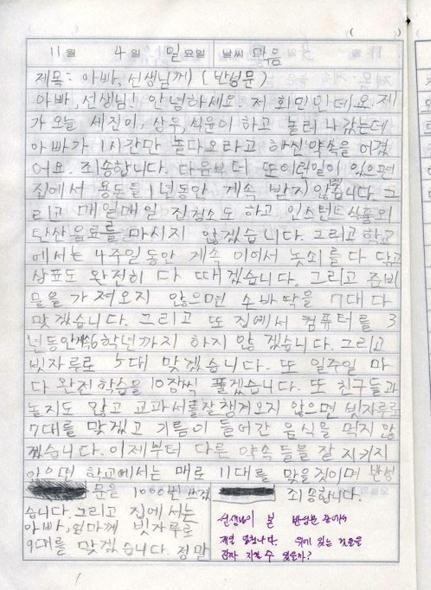 11월 4일 일요일 날씨 맑음
제목: 아빠, 선생님께 (반성문)
아빠, 선생님! 안녕하세요. 저 희민인데요. 제
가 오늘 세진이, 상우, 석운이 하고 놀러 나갔는데
아빠가 1시간만 놀다오라고 하신 약속을 어겼
어요. 죄송합니다. 다음부터 또 이런일이 있으면
집에서 용돈을 1년동안 계속 받지 않겠습니다. 그
리고 매일매일 집청소도 하고 인스턴트식품과
탄산음료를 마시지 않겠습니다. 그리고 학교
에서는 4주일 동안 계속 이어서 놋쇠를 다 닦고
상표도 완전히 다 때겠습니다. 그리고 준비
물을 가져오지 않으면 손바닥을 7대 다
맞겠습니다. 그리고 또 집에서 컴퓨터를 3
년동안 6학년까지 하지 않겠습니다. 그리고
빗자루로 5대 맞겠습니다. 또 일주일 마
다 완전학습을 10장씩 풀겠습니다. 또 친구들과
놀지도 않고 교과서를 잘 챙겨오지 않으면 빗자루로
7대를 맞겠고 기름이 들어간 음식을 먹지 않
겠습니다. 이제부터 다른 약속들을 잘 지키지
않으면 학교에서는 매로 11대를 맞을것이며 반성
문을 1000번
습니다. 그리고 집에서는
아빠, 엄마께 빗자루로
9대를 맞겠습니다. 정말
죄송합니다.
선생님이 본 반성문 중에서
제일 입니다. 위에 있는 것들을
과자 지킬 수 있을까?